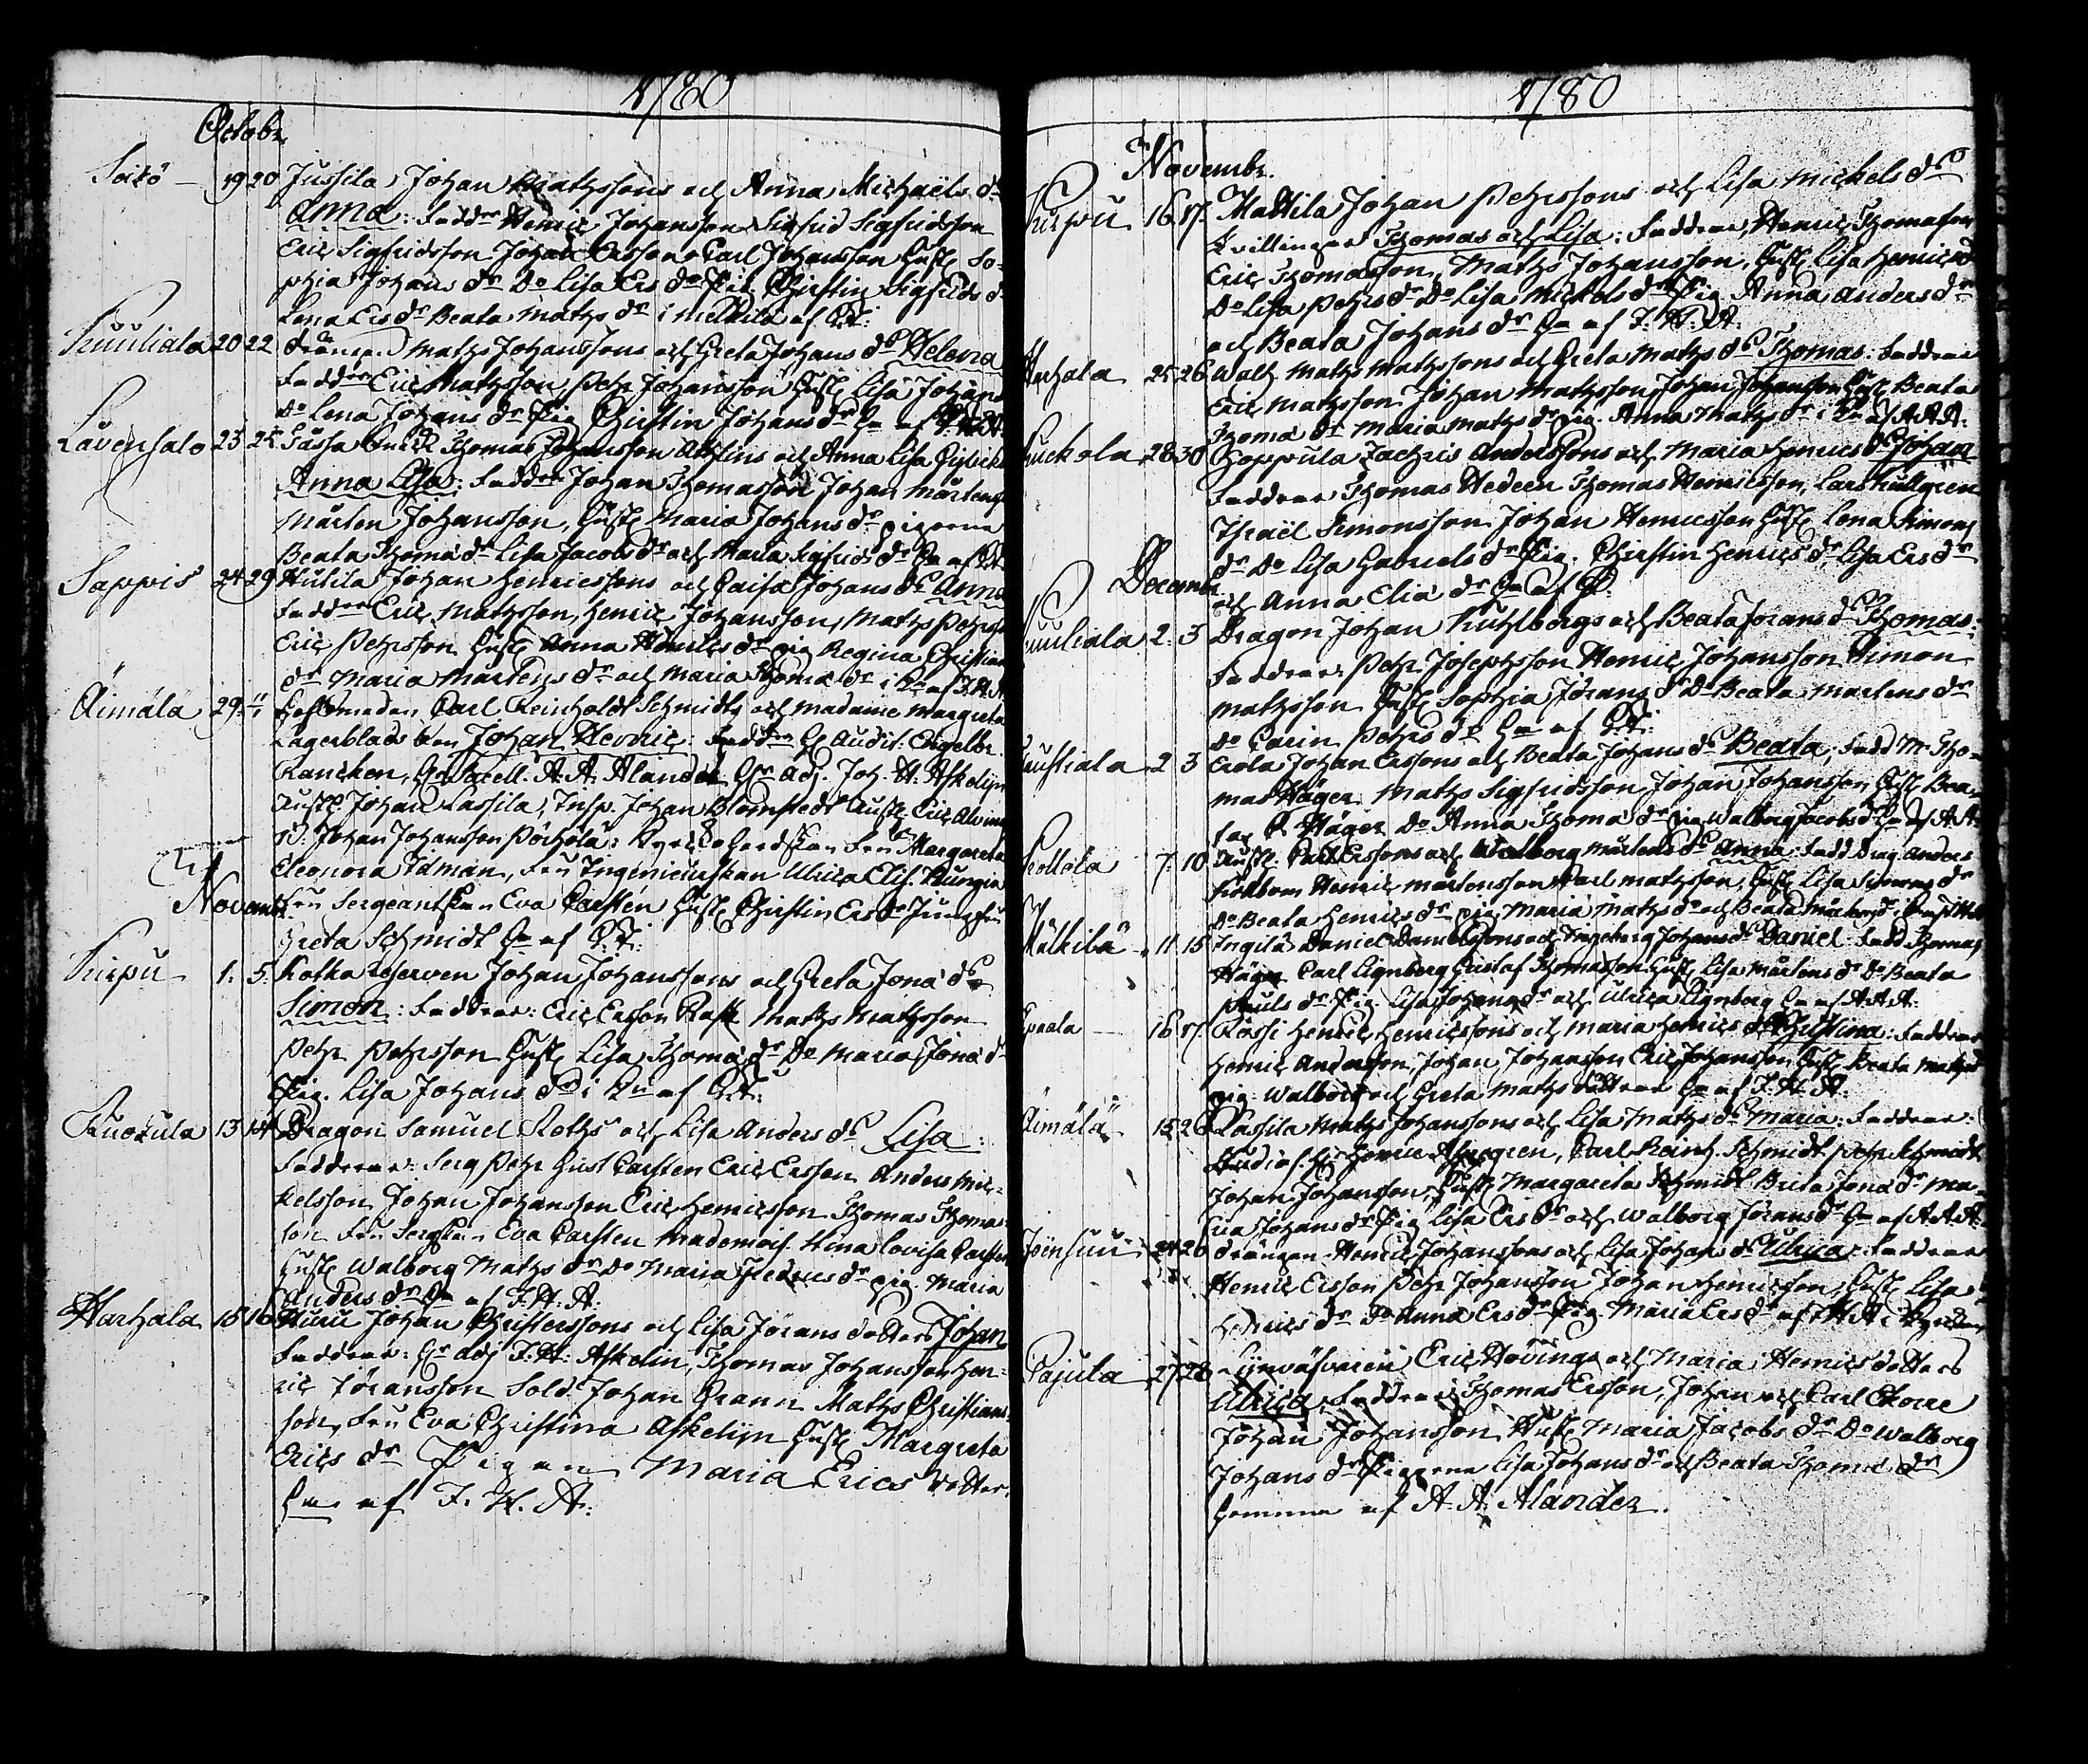 1780
Octobr
Soitö — 19 20 Jussila Johan Mathssons och Anna Michaels dr
Anna: Faddr Henric Johansson Sigfrid Sigfridsson
Eric Sigfridsson Johan Ersson Carl Johansson Hust: So-
phia Johans dr Do Lisa Ers dr Pig: Christin Sigfrids d
Lena Ers dr Beata Maths dr i Mälkilä af
Kuuliala 20 22 Drängen Maths Johanssons och Greta Johans dr Helena
Faddr Eric Mathsson, Pehr Johansson Hust Lisa Johans
Do Lena Johans dr Pig Christin Johans dr af
Lävensalo 23 25 Thomas Johansson och Anna Lisa
Anna Lisa: Faddr Johan Thomasson Johan Mårtens
Mårten Johansson, Hust Maria Johans dr pigorna
Beata Thoma dr Lisa Jacobs dr och Maria Sigfrids dr af
Sappis 24 29 Johan Henricssons och Caisa Johans dr Anna
Faddr Eric Mathsson, Henric Johansson, Maths Pehrs
Eric Pehrsson Hust Anna Henrics dr pig Regina Christian
dr Maria Mårtens dr och Maria Thoma dr i af J. H. A.
Äimälä 29. Carl Reinholdt Schmidts och Madame Margreta
Lagerblads Johan Henric: Faddr Hr Audit: Engelbr.
Rancken, Hr Sacell. A. A. Alander Hr adj. Joh. H. Askelijn
Johan Lassila, Insp. Johan Blomstedt Eric
Johan Johansson Pörhölä: Fru Margareta
Eleonora Idman, Fru Ingenieurskan Ulrica Elis.
Novembr Fru Sergeantskan Eva Carsten Hust Christin Ers dr Jungfru
Greta Schmidt af
Kirpu 1. 5. Kalka Johan Johanssons och Greta Jona dr
Simon: Faddrar: Eric Ersson Rask Maths Mathsson
Pehr Pehrsson Hust Lisa Thoma dr Do Maria Jona d
Pig. Lisa Johans dr i af
Kuokula 13 14 Dragon Samuel Roths och Lisa Anders dr Lisa:
Faddrar: Serg Pehr Gust Carsten Eric Ersson Anders Mic-
kelsson Johan Johansson Eric Henricsson Thomas Thomas-
son Fru Eva Carsten Mademois. Stina Lovisa Carsten
Hust Walborg Maths dr Do Maria Fredrics dr pig. Maria
Anders dr af J. H. A:
Harhala 15 16 Huru Johan Christerssons och Lisa Jörans dotters Johan
Faddrar: Hr adj J. H: Askelin, Thomas Johansson Hen-
ric Jöransson Sold. Johan Grann Maths Christians-
son, Fru Eva Christina Askelijn Hust Margreta
Erics dr Pigan Maria Erics dotter.
af J. H. A:
1780
Novembr.
Kirpu 16 17 Mattila Johan Pehrssons och Lisa Mickels dr
Tvillingar Thomas och Lisa: Faddrar, Henric Thomasson
Eric Thomasson, Maths Johansson, Hust Lisa Henrics d
Do Lisa Pehrs dr Do Lisa Mickels dr Pig Anna Anders dr
och Beata Johans dr af J. H. A.
Harhala 25 26 Maths Mathssons och Greta Maths dr Thomas: Faddrar
Eric Mathsson Johan Mathsson, Johan Johansson Hust Beata
Thoma dr Maria Maths dr pig. Anna Maths dr i af A A A.
Kuckola 28 30 Hoppula Zachris Anderssons och Maria Henrics dr Johan
Faddrar Thomas Hedeen Thomas Henricsson, Lars Kullgren
Israël Simonsson Johan Henricsson Hust Lena Simons
dr Do Lisa Gabriels dr Pig. Christin Henrics dr, Lisa Ers dr
och Anna Elia dr af
Decembr
Kuuliala 2. 3 Dragon Johan Kuhlbergs och Beata Jörans dr Thomas:
Faddrar: Pehr Josephsson Henric Johansson Simon
Mathsson Hust Sophia Jörans dr Do Beata Mårtens dr
Do Carin Pehrs dr af
2 3 Erola Johan Erssons och Beata Johans dr Beata, Fadd Mr Tho-
mas Häger Maths Sigfridsson, Johan Johansson Hust Bea-
ta Häger Do Anna Thoma dr pig Walborg Jacobs dr af A A
7. 10 Carl Erssons och Walborg Mårtens dr Anna. Fadd Drag. Anders
Henric Mårtensson Carl Mathsson, Hust Lisa Simons dr
Do Beata Henrics dr pig. Maria Maths dr och Beata Mårtens dr
Mälkilä 11. 15 Ingilä Daniel Danielssons och Ingeborg Johans dr Daniel. Fadd Thomas
Häger Carl Lignberg Gustaf Thomasson Hust Lisa Mårtens dr Do Beata
Pauls dr Pig. Lisa Johans dr och Ulrica Lignberg af A A A:
16 17. Rossi Henric Henricssons och Maria Henrics dr Christina: Faddrar
Henric Andersson, Johan Johansson Eric Johansson Hust Beata Maths d
pig. Walborg och Greta Maths döttrar af J. H. A.
Äimälä 15 26 Lassila Maths Johanssons och Lisa Maths dr Maria: Faddrar:
Henric Ahlgren, Carl Reinh. Schmidt Pehr Schmidt
Johan Johansson, Hust Margareta Schmidt Brita Jona dr Ma-
ria Johans dr Pig Lisa Ers dr och Walborg Jörans dr af A A A:
Joensuu 24 26 Drängen Henric Johanssons och Lisa Johans dr Ulrica: Faddrar
Henric Ersson Pehr Johansson Johan Henricsson, Hust Lisa
Henrics dr Do Anna Ers dr Pig. Maria Ers dr af J H A:
Pajula 27 28 Eric Hovings och Maria Henrics dotters
Ulrica. Faddrar Thomas Ersson, Johan och Carl Ekorre
Johan Johansson Hust Maria Jacobs dr Do Walborg
Johans dr Pigorna Lisa Johans dr och Beata Thoma dr
hemma af A. A. Alander.